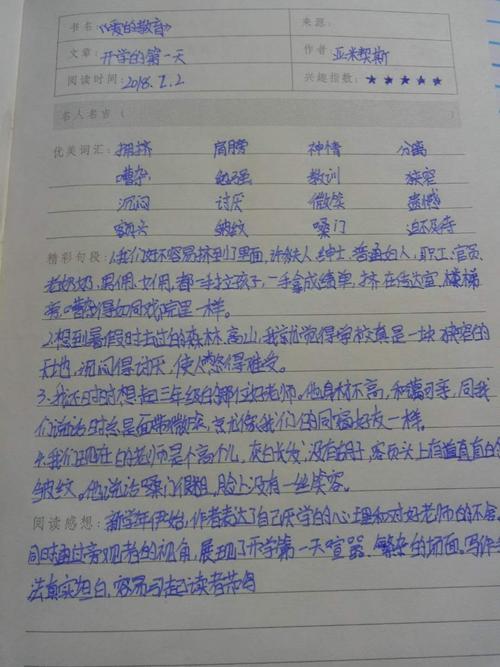 书名《爱的教育》 来源:
文章: 开学的第一天 作者 亚米契斯
阅读时间: 2018.7.2. 兴趣指数: ★★★★★
名人名言(                )
优美词汇: 拥挤 肩膀 神情 分离
嘈杂 勉强 教训 狭窄
沉闷 讨厌 微笑 遗憾
额头 皱纹 嗓门 迫不及待
精彩句段: 1.我们好不容易挤到了里面,许多夫人、绅士、普通妇人、职工、官员、
老奶奶,男佣、女佣,都一手拉孩子,一手拿成绩单,挤在传达室、楼梯
旁,嘈杂得如同戏院里一样。
2.想到暑假时去过的森林、高山,我就觉得学校真是一块狭窄的
天地,沉闷得讨厌,使人憋得难受。
3.我不时时想起三年级的那位好老师。他身材不高,和蔼可亲,同我
们说话时总是面带微笑,就像我们的同窗好友一样。
4.我们现在的老师是个高个儿,灰白长发,没有胡子,额头上有道直直的
皱纹。他说话嗓门很粗,脸上没有一丝笑容。
阅读感想: 新学年伊始,作者表达了自己厌学的心理和对好老师的不舍,
同时通过旁观者的视角,展现了开学第一天喧嚣、繁杂的场面。写作手
法真实坦白,容易引起读者共鸣